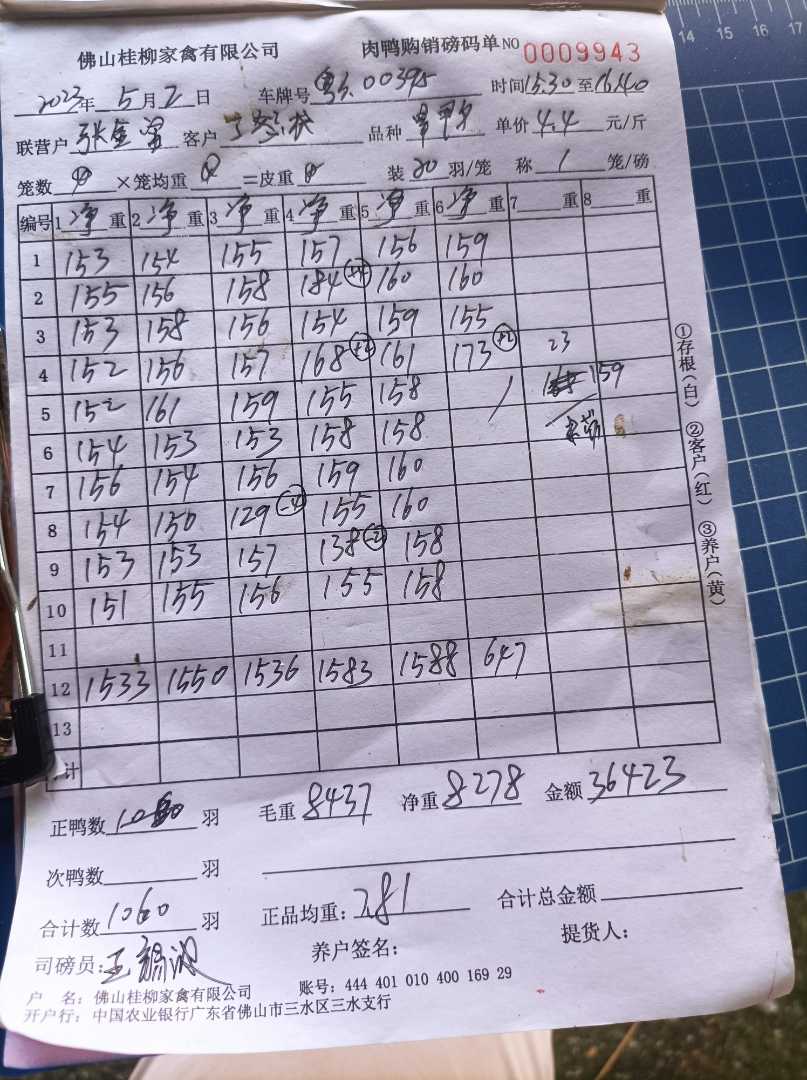 佛山桂柳家禽有限公司 肉鸭购销磅码单 NO 0009943
2023年 5月2日 车牌号 00395 时间 15:30 至 16:40
联营户 张 客户 品种 单价 4.4 元/斤
笼数 0 ×笼均重 0 =皮重 0 装 20 羽/笼 称 1 笼/磅
编号 1 净 重 2 净 重 3 净 重 4 净 重 5 净 重 6 净 重 7 重 8 重
1 153 154 155 157 156 159
2 155 156 158 184 160 160
3 153 158 156 154 159 155
4 152 156 157 168 +2 161 173 +2 23
5 152 161 159 155 158 159
6 154 153 153 158 158
7 156 154 156 159 160
8 154 150 129 -4 155 160
9 153 153 157 138 -2 158
10 151 155 156 155 158
11
12 1533 1550 1536 1583 1588 647
13
计
正鸭数 1060 羽 毛重 8437 净重 8278 金额 36423
次鸭数 羽
合计数 1060 羽 正品均重: 7.81 合计总金额
司磅员: 王 养户签名: 提货人:
户 名: 佛山桂柳家禽有限公司 账号: 444 401 010 400 169 29
开户行: 中国农业银行广东省佛山市三水区三水支行
①存根(白) ②客户(红) ③养户(黄)
14 15 16 17